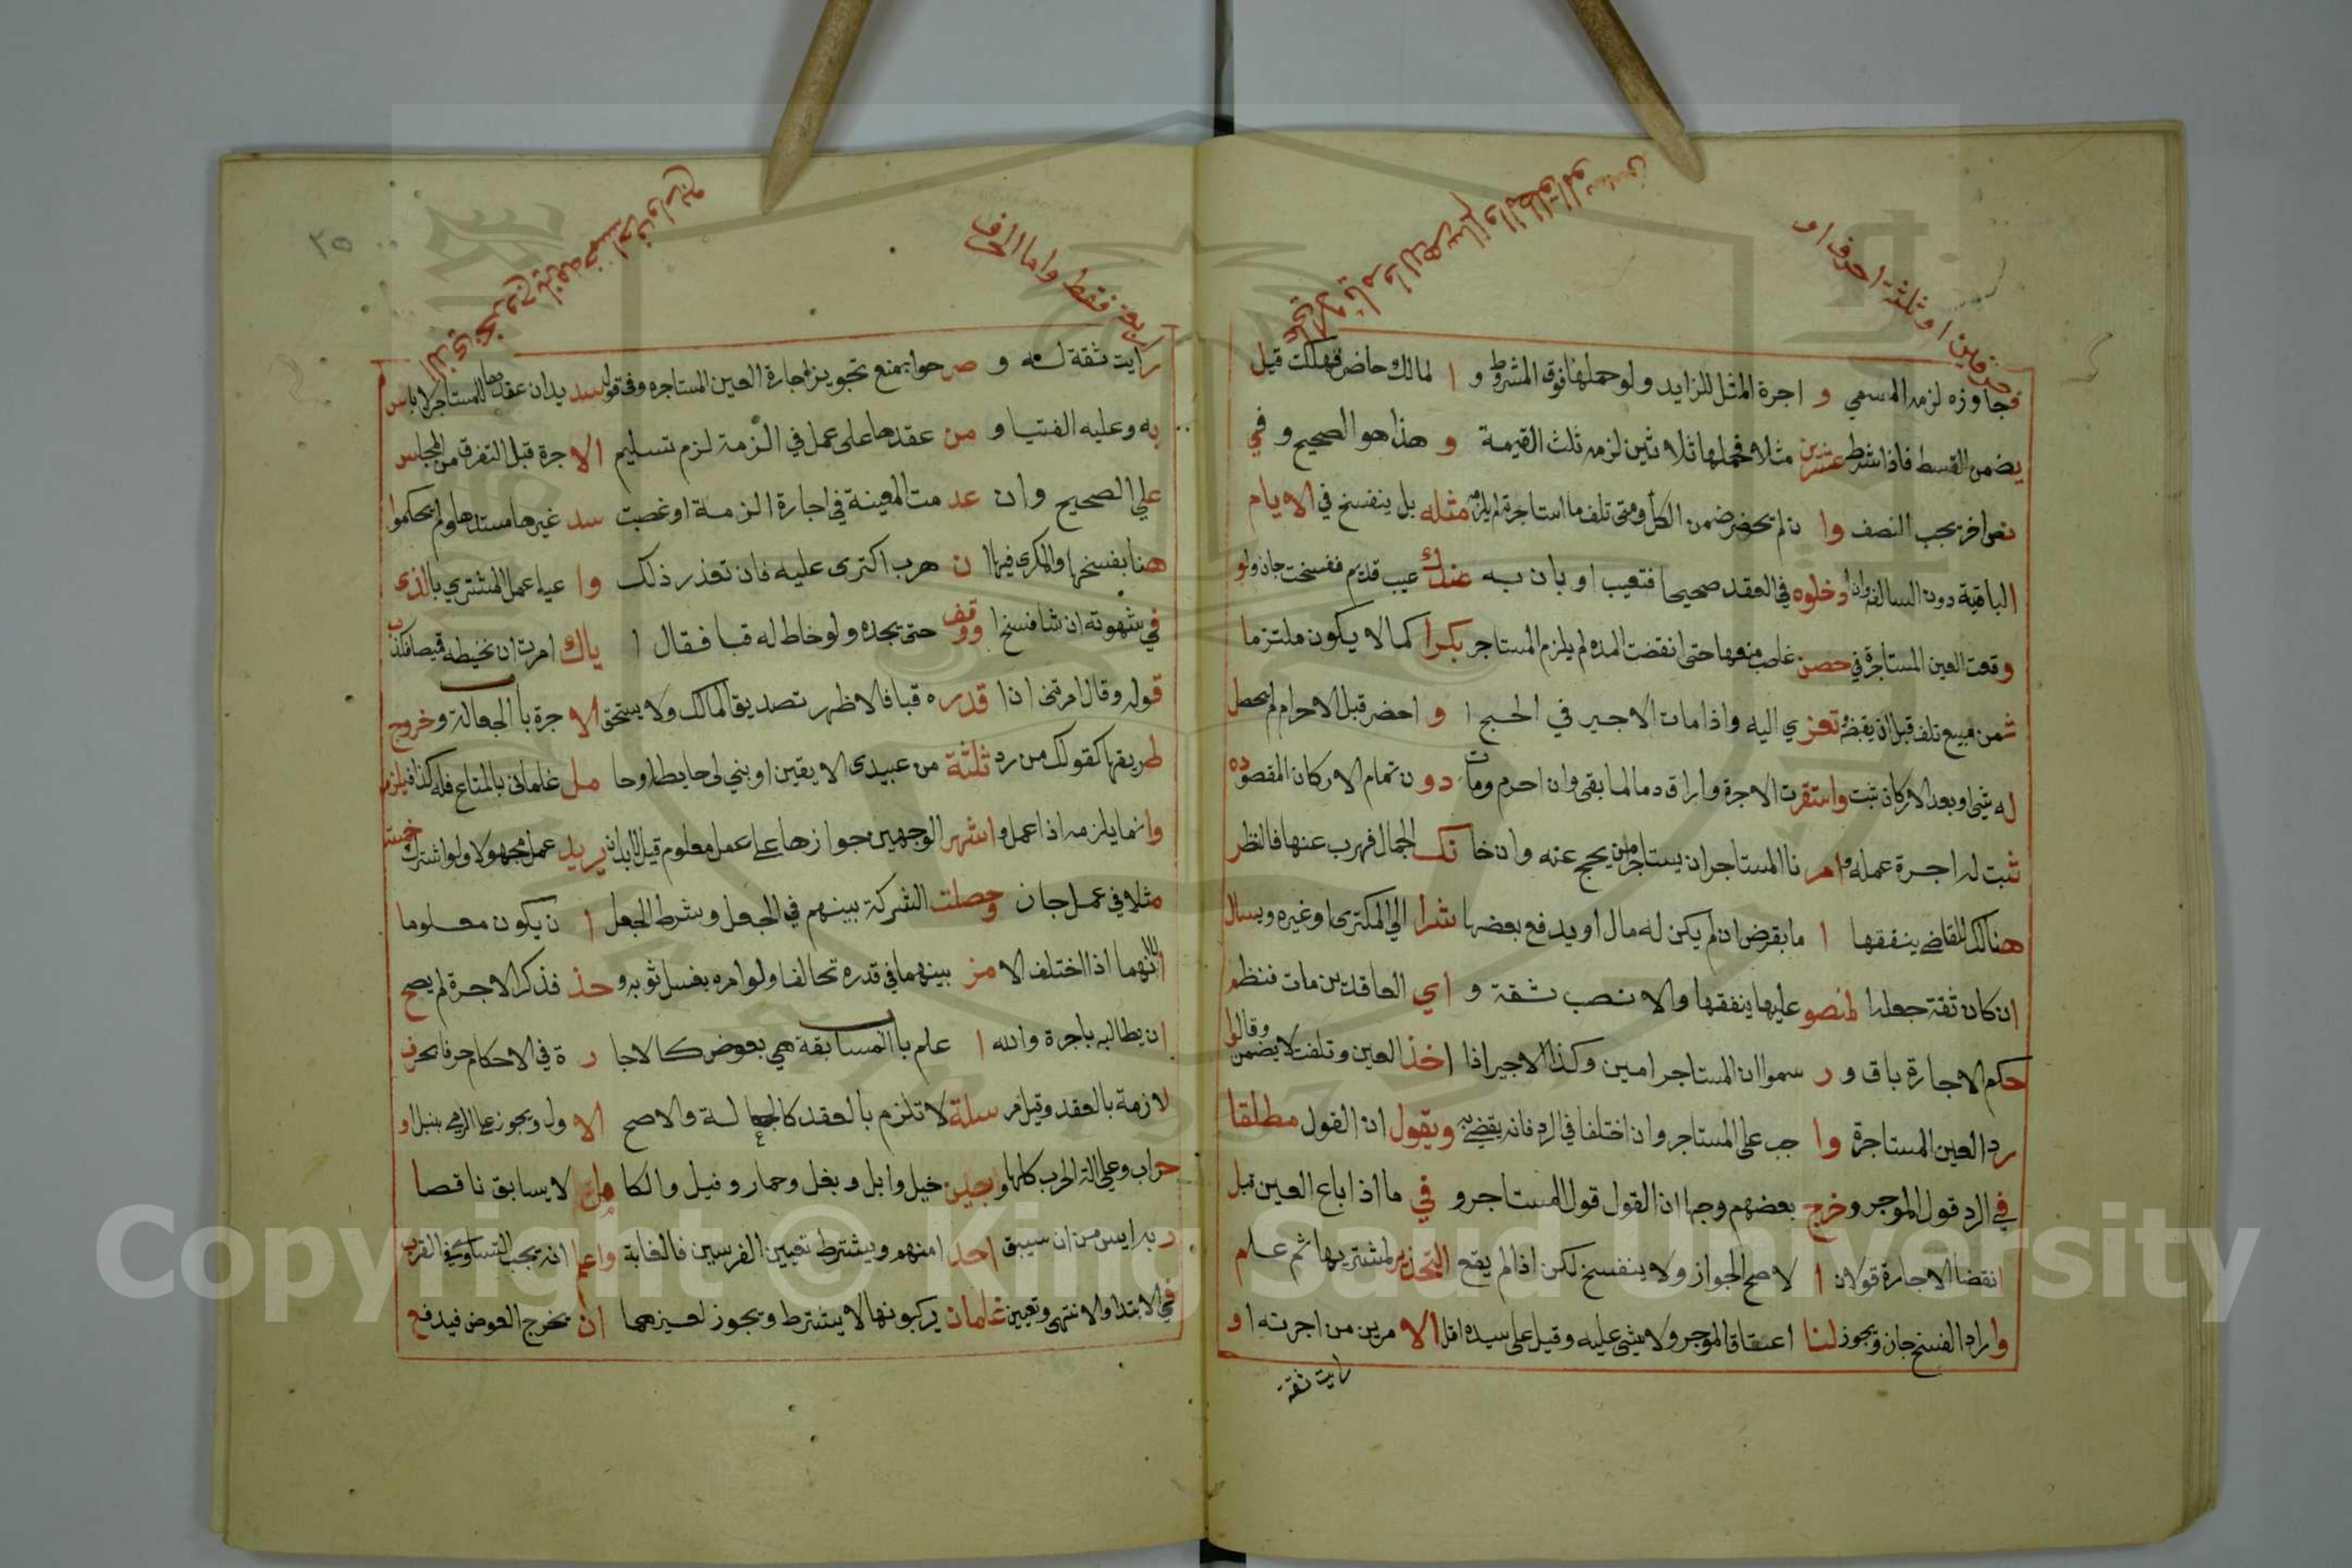 حرفين او ثلثة احرف او
فجاوزه لزمه المسمي و اجرة المثل للزايد ولو حملها فوق المشروط و ا لمالك حاضر فهلكت قيل
يضمن القسط فاذا شرط عشرين مثلا فحملها ثلاثين لزمه ثلث القيمة و هذا هو الصحيح و في
يجب النصف وا ن لم يحضر ضمن الكل ومتى تلف ما استاجرة لم يلزمه مثله بل ينفسخ في الايام
الباقية دون السالفه وان ادخلوه في العقد صحيحا فتعيب او بان به عندك عيب قديم ففسخت جاز ولو
وقعت العين المستاجرة في حصن غاصب منعها حتى انقضت المده لم يلزم المستاجر بكرا كما لا يكون ملتزما
ثمن مبيع تلف قبل ان يقبضه وتعزي اليه واذا مات الاجير في الحج ا و احضر قبل الاحرام لم يحصل
له شي او بعد الاركان ثبت واستقرت الاجرة واراق دما لما بقى وان احرم ومات دو ن تمام الاركان المقصوده
ثبت له اجرة عمله وامر نا المستاجر ان يستاجر من يحج عنه وان خا نك الجمال فهرب عنها فالنظر
هنالك للقاضي ينفقها ا ما بقرض ان لم يكن له مال او يدفع بعضها شرا الي المكترى او غيره ويسال
ان كان ثقة جعلها لمنصو عليها ينفقها والا نصب ثقة و اي العاقدين مات فنظم
حكم الاجارة باق و ر سموا ان المستاجر امين وكذا الاجير اذا اخذ العين وتلفت لا يضمن وقالوا
رد العين المستاجرة وا جب على المستاجر وان اختلفا في الرد فانه يقضي به ويقول ان القول مطلقا
في الرد قول الموجر وخرج بعضهم وجها ان القول قول المستاجر و في ما اذا باع العين قبل
انقضا الاجارة قولان ا لاصح الجواز ولا ينفسخ لكن اذا لم يقع التحذير لمشتريها ثم علم
واراد الفسخ جاز ويجوز لنا اعتاق الموجر ولا شي عليه وقيل على سيده اقل الا مرين من اجرته او
رايت ثقة
٢٥
اربعة فقط واما الحرف
رايت ثقة له و صر حوا بمنع تجويز اجارة العين المستاجره وفي قول سد يد ان عقدها للمستاجر لا باس
به وعليه الفتيا و من عقدها على عمل في الزمة لزم تسليم الا جرة قبل التفرق من المجلس
علي الصحيح وان عد مت المعينة في اجارة الزمة او غصبت سد غيرها مسدها ولم يحكموا
هنا بفسخها والمكرى فيها ا ن هرب اكترى عليه فان تعذر ذلك وا عيا عمل المشتري بالذى
في شهوته ان شا فسخ ا ووقف حتى يجده ولو خاط له قبا فقال ا ياك امرت ان تخيطه قميصا فكذب
قوله وقال امرتني اذا قدره قبا فالاظهر تصديق المالك ولا يستحق الا جرة باالجعالة وخروج
طريقها كقولك من رد ثلثة من عبيدى الا يقين او بني لى حايطا وحا مل غلمانى بالمتاع فله كذا فيلزم
وانما يلزمه اذا عمل واشهر الوجهين جوازها على عمل معلوم قيل لابد ان يريد عمل مجهولا ولو اشترك خمسة
مثلا في عمل جاز وحصلت الشركة بينهم في الجعل وشرط الجعل ا ن يكون معلوما
لانهما اذا اختلف الا مر بينهما في قدره تحالفا ولو امره بغسل ثوبه و حذ فذكر الاجرة لم يصح
ان يطالبه باجرة والله ا علم باالمسابقة هي بعوض كالاجا ر ة في الاحكام حرفا بحرف
لازمة بالعقد وقيل مر سلة لا تلزم بالعقد كالجعالة والاصح الا ول ويجوز على الرمي بنبل او
حراب وعلي الة الحرب كلها وبجين خيل وابل وبغل وحمار وفيل والكا مل لا يسابق ناقصا
ر بدايس من ان سيبق احد امنهم ويشترط تعيين الفرسين فالغابة واعلم انه يجب التساوي في القرب
في الابتدا والانتهى وتعيين غلمان يركبونها لا يشترط ويجوز لغيرهما ان يخرج العوض فيدفع